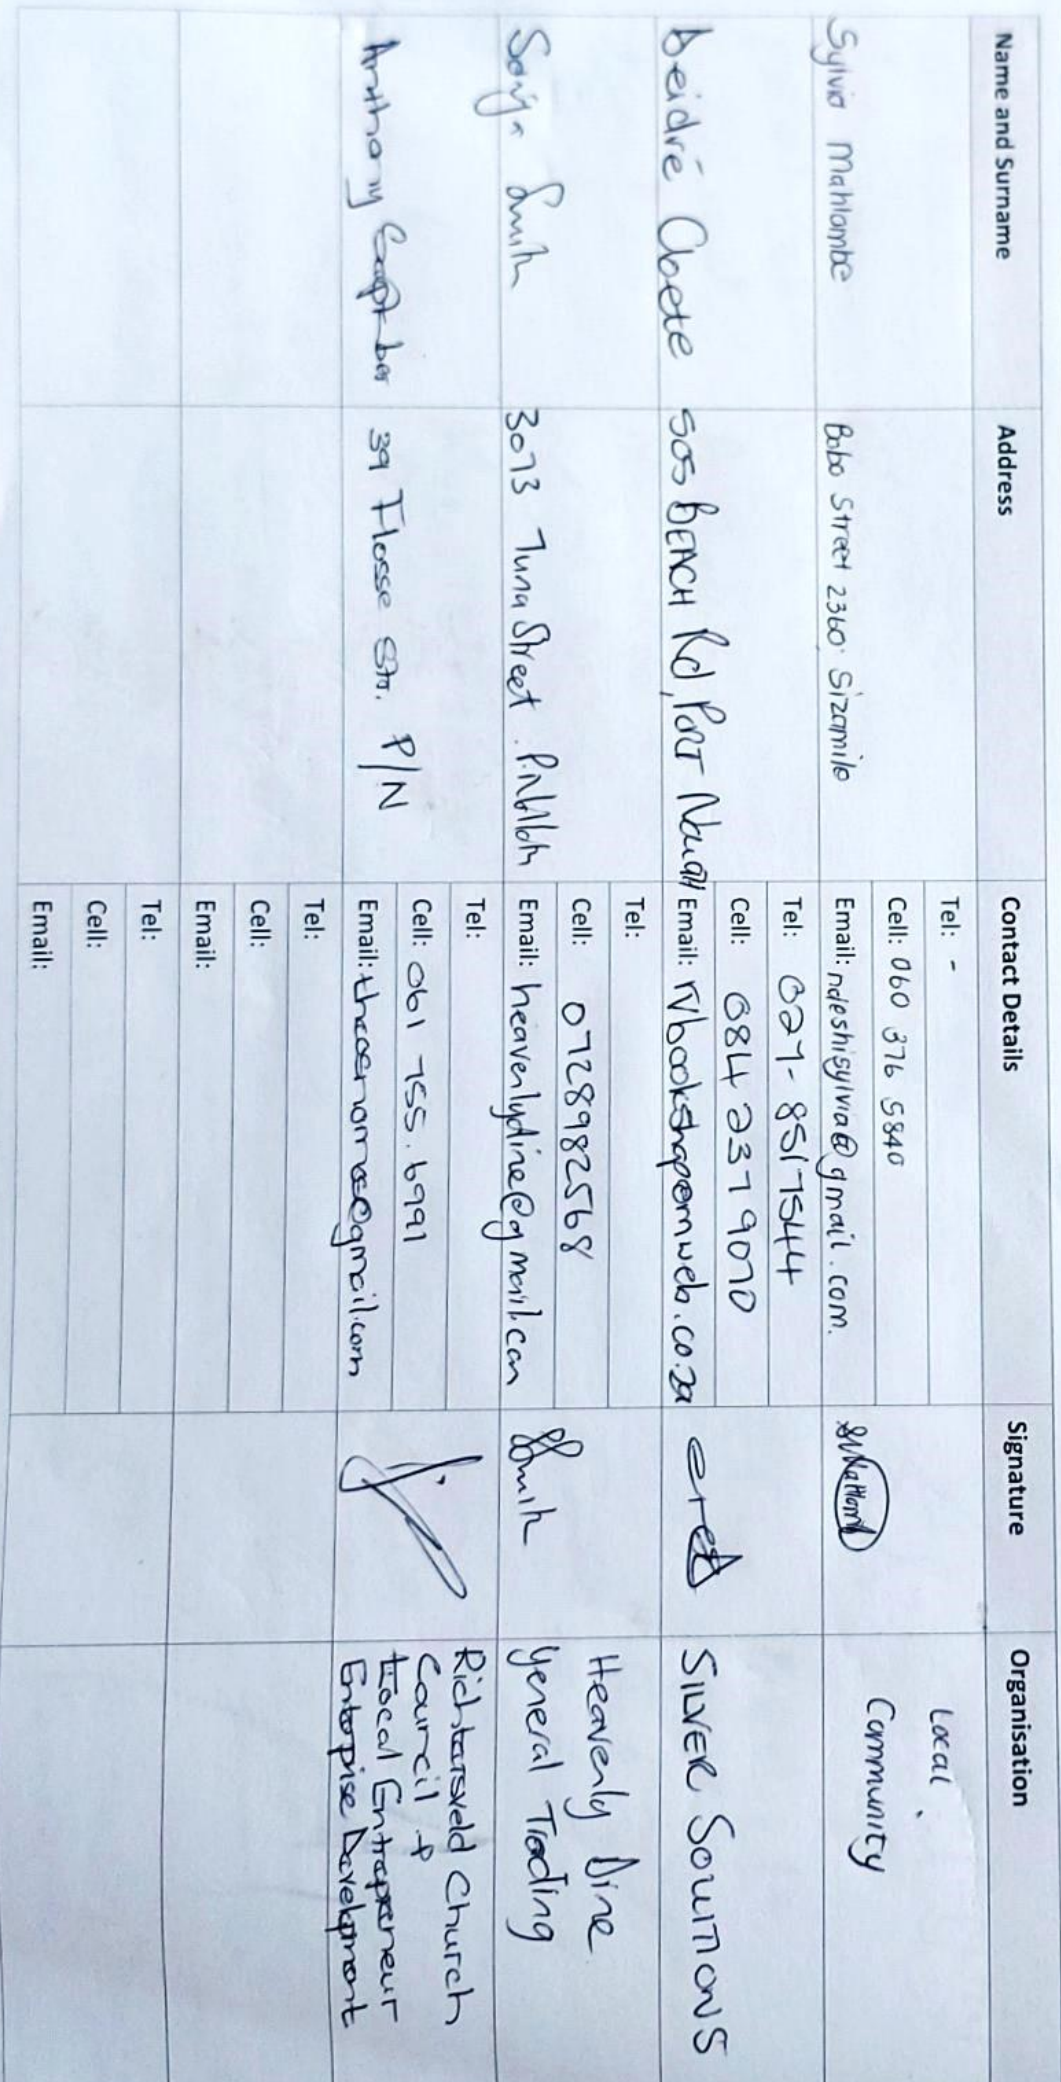 Name and Surname Address Contact Details Signature Organisation
Sylvia Mahlambe Bobo Street 2360. Sizamile
Tel: -
Cell: 060 376 5840
Email: ndeshisylvia@gmail.com.
Local
Community
Deidré Obete 505 BEACH Rd, PORT
Tel: 027-8517544
Cell: 084 237 9070
Email: rvbookshop@mweb.co.za
SILVER SOLUTIONS
Sonja Smith 3073 Tuna Street.
Tel:
Cell: 0728982568
Email: heavenlydine@gmail.com
Smith
Heavenly Dine
General Trading
Anthony 39 Flosse Str. P/N
Tel:
Cell: 061 755.6991
Email:
Richtersveld Church
Council +
Local Entrepreneur
Enterprise Development
Tel:
Cell:
Email:
Tel:
Cell:
Email: